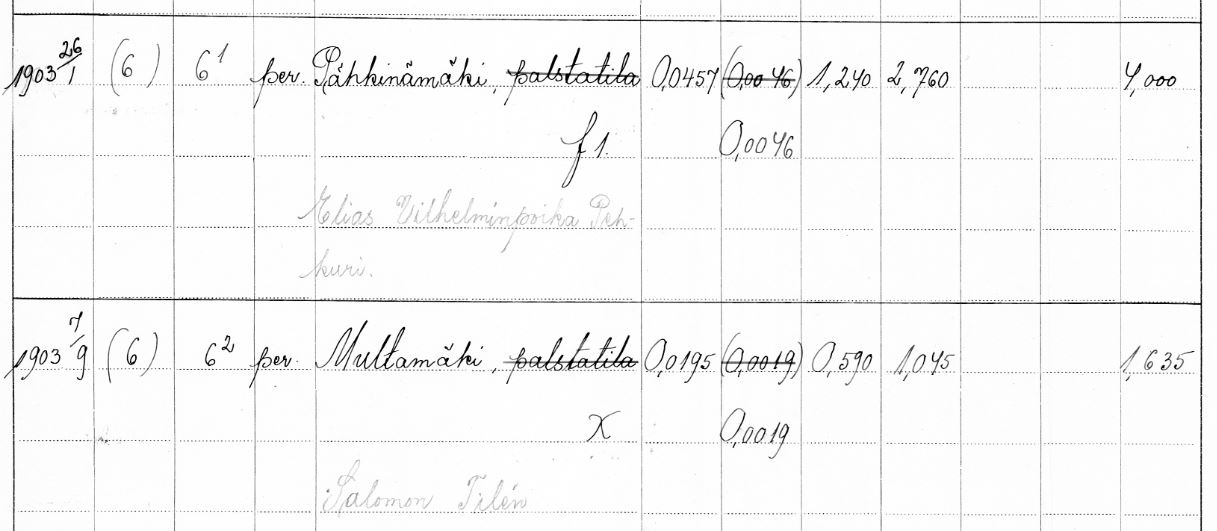 1903 26/1 (6) 6¹ per. Pähkinämäki, palstatila 0,0457 (0,0046) 1,240 2,760 4,000
f 1. 0,0046
Elias Vilhelminpoika Peh-
kuri.
1903 7/9 (6) 6² per. Multamäki, palstatila 0,0195 (0,0019) 0,590 1,045 1,635
X 0,0019
Salomon Tilén